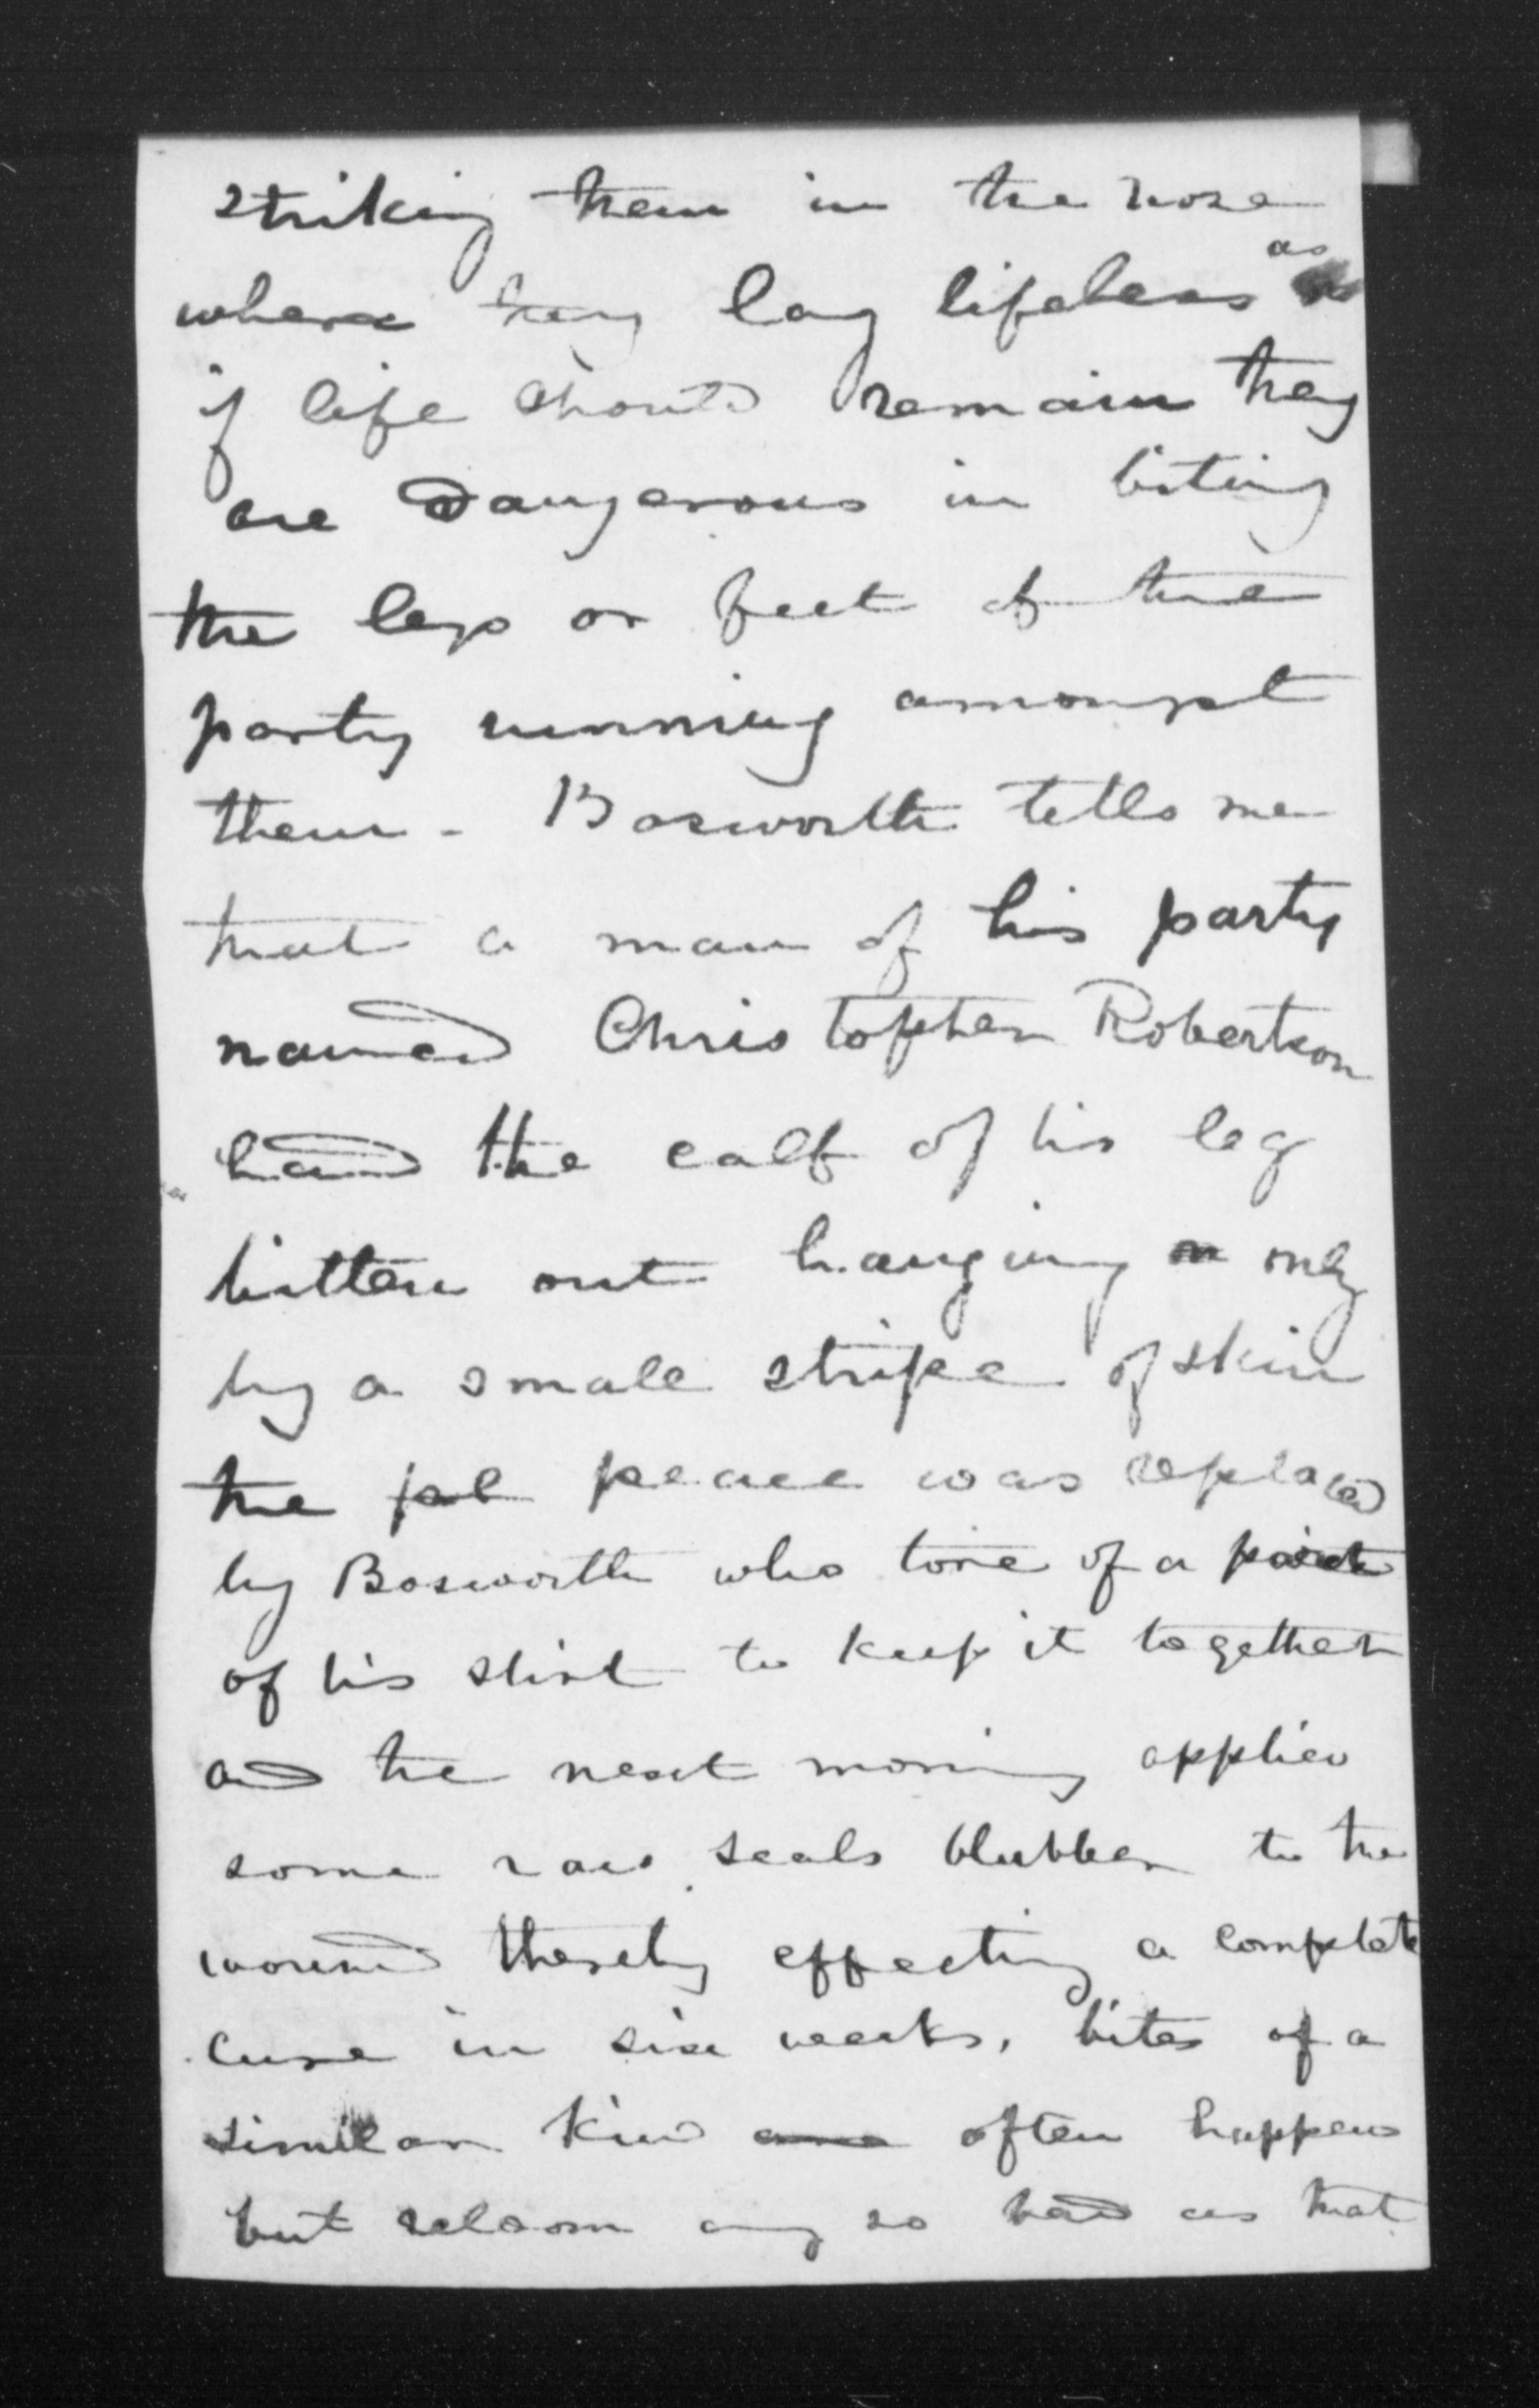 striking them in the nose
where they lay lifeless as
if life should remain they
are dangerous in biting
the legs or feet of the
party running amongst
them - Bosworth tells me
that a man of his party
named Christopher Robertson
had the calf of his leg
bitten out hanging on only
by a small stripe of skin
the pe peace was replaced
by Bosworth who tore of a part
of his shirt to keep it together
and the next morning applied
some raw seals blubber to the
wound thereby effecting a complete
cure in six weeks, bites of a
similar kind are often happens
but seldom any so bad as that